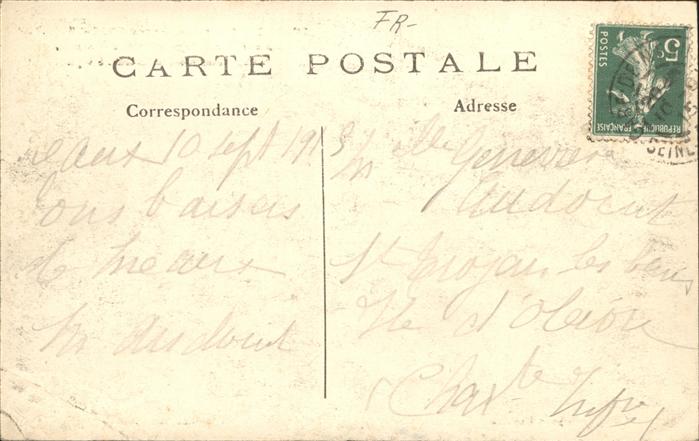 FR-
CARTE POSTALE
Correspondance
Adresse
5c
POSTES
REPUBLIQUE FRANÇAISE
SEINE
10 Sept 1913
Bons baisers
de Meaux
M Audouit
Mlle Geneviève
Audouit
St Trojan les bains
Ile d'Oléron
Charte Infre